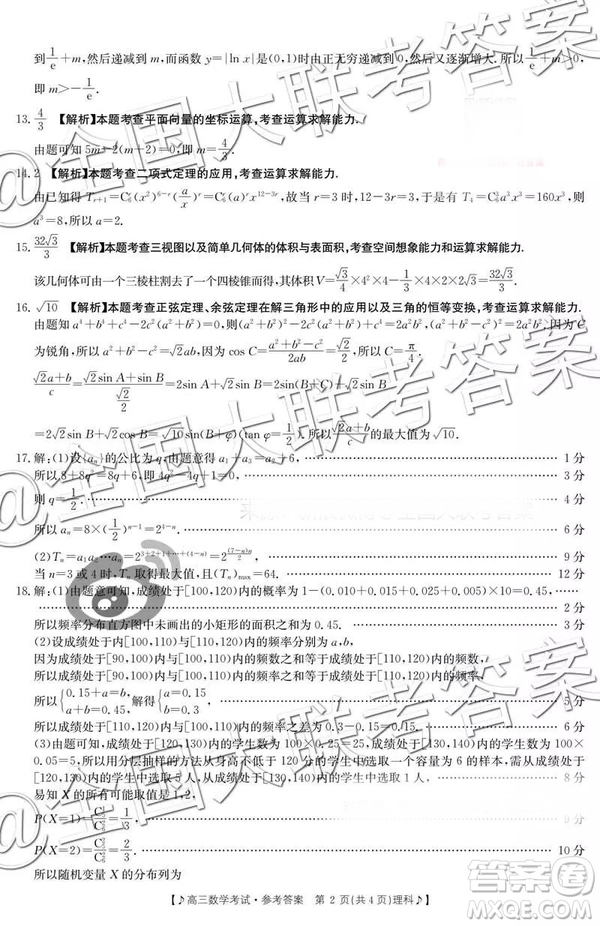 到1/e+m,然后递减到 m,而函数 y=|ln x|是(0,1)时由正无穷递减到 0,然后逐渐增大.
即 m>-1/e.
13. 4/3 【解析】本题考查平面向量的坐标运算,考查运算求解能力.
14. 2 【解析】本题考查二项式定理的应用,考查运算求解能力.
a³=8,所以 a=2.
15. 32√3/3 【解析】本题考查三视图以及简单几何体的体积与表面积,考查空间想象能力和运算求解能力.
该几何体由一个三棱柱割去了一个四棱锥而得,其体积V=√3/4×4²×4-1/3×4×2×2√3=32√3/3.
16. √10 【解析】本题考查正弦定理、余弦定理在解三角形中的应用以及三角的恒等变换,考查运算求解能力.
由题知 a⁴+b⁴+c⁴-2c²(a²+b²)=0,则(a²+b²)²-2c²(a²+b²)+c⁴=2a²b²,(a²+b²-c²)²=2a²b².因为 C
为锐角,所以 a²+b²-c²=√2ab,因为 cos C=(a²+b²-c²)/2ab=√2/2,所以 C=π/4.
(√2a+b)/c=(√2sin A+sin B)/(√2/2)=2sin A+√2sin B=2sin(B+π/4)+√2sin B
=2√2sin B+√2cos B=√10sin(B+φ)(tan φ=1/2).所以(√2a+b)/c的最大值为√10.
17. 解:(1)设{aₙ}的公比为 q,由题意得 a₁+a₃=a₂+6, 1 分
所以 8+8q²=8q+6,即 4q²-4q+1=0, 3 分
则 q=1/2. 4 分
所以 aₙ=8×(1/2)ⁿ⁻¹=2⁴⁻ⁿ. 6 分
(2)Tₙ=a₁a₂…aₙ=2^(3+2+1+…+(4-n))=2^((7-n)n/2), 9 分
当 n=3 或 4 时,Tₙ 取得最大值,且(Tₙ)max=64. 12 分
18. 解:(1)由题意可知,成绩处于内的概率为 1-(0.010+0.015+0.025+0.005)×10=0.45,
2 分
所以频率分布直方图中未画出的小矩形的面积之和为 0.45. 3 分
(2)设成绩处于内[100,110)与[110,120)内的频率分别为 a,b,
因为成绩处于[90,100)内与[100,110)内的频数之和等于成绩处于[110,120)内的频数,
所以{0.15+a=b, a+b=0.45, 解得{a=0.15, b=0.3.
所以成绩处于[110,120)内与[100,110)内的频率之差为 0.3-0.15=0.15. 6 分
(3)由题可知,成绩处于[120,130)内的学生数为 100×0.25=25,成绩处于[130,140)内的学生数为 100×
0.05=5,所以用分层抽样的方法从成绩不低于 120 分的学生中抽取一个容量为 6 的样本,需从成绩处于
[120,130)内的学生中选取 5 人,从成绩处于[130,140)内的学生中选取 1 人. 8 分
易知 X 的所有可能取值是 1,2,
2/3. 10 分
所以随机变量 X 的分布列为
【♪高三数学考试·参考答案 第 2 页(共 4 页)理科♪】
@全国大联考答案